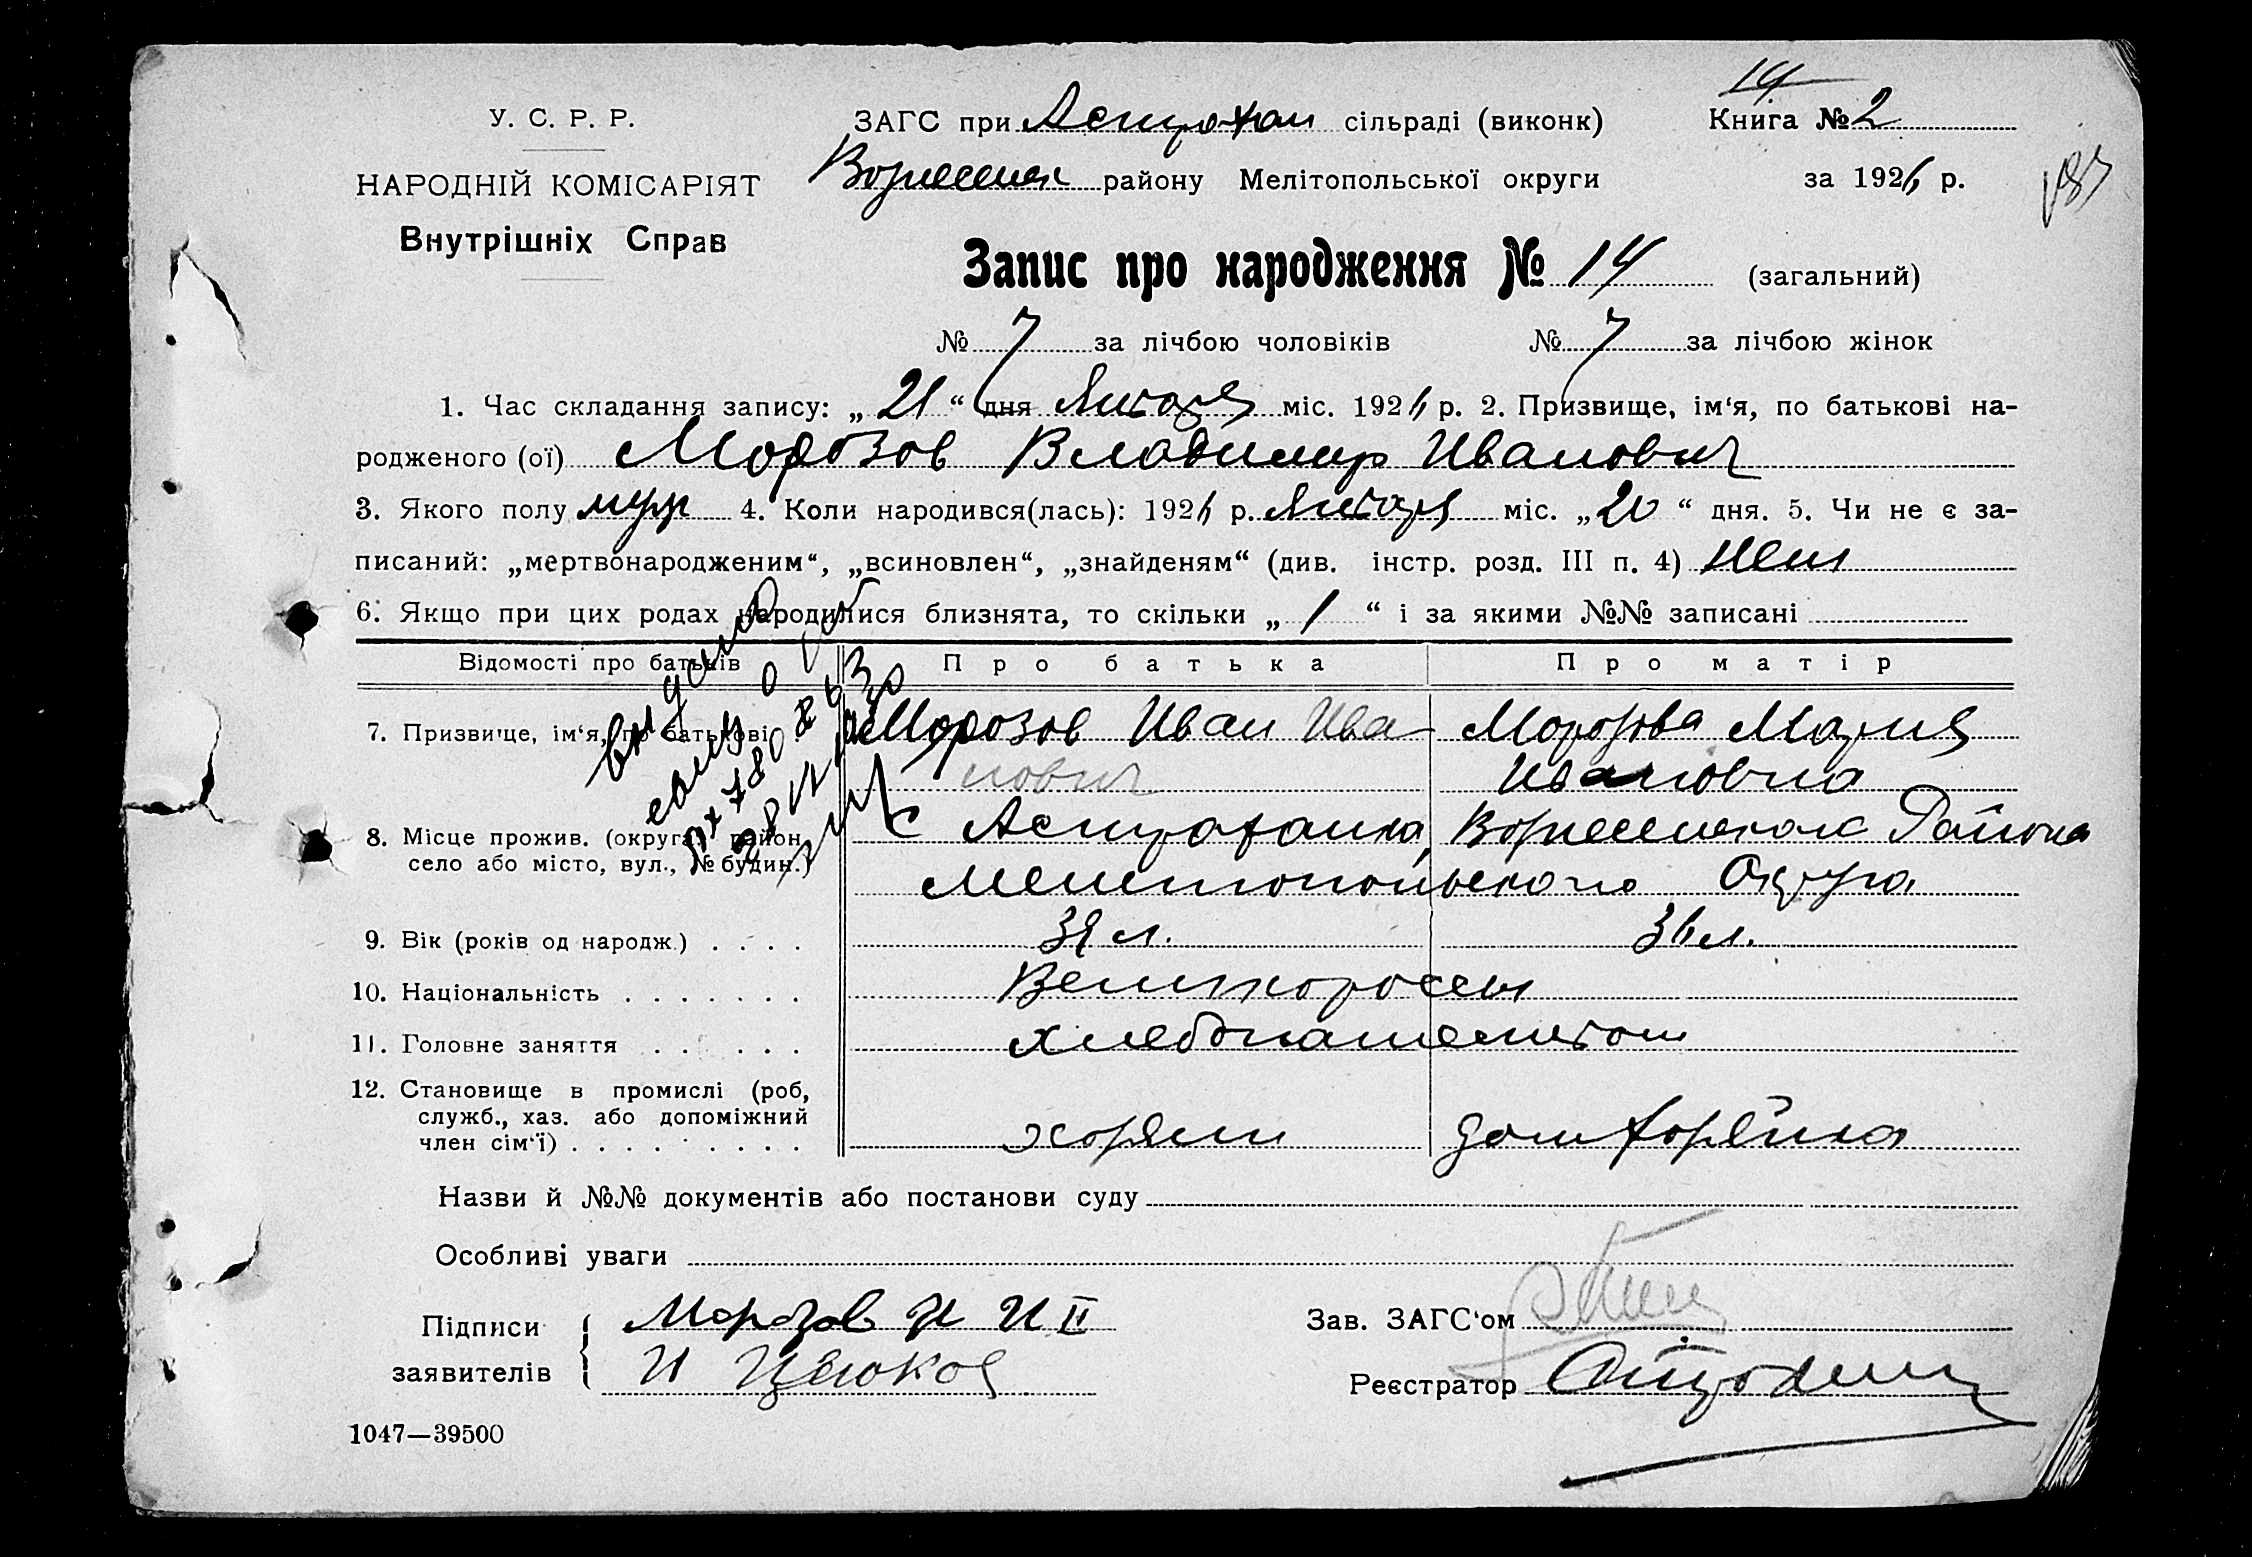 14
У. С. Р. Р.
ЗАГС при Астрахан сільраді (виконк)
Книга № 2
НАРОДНІЙ КОМІСАРІЯТ
Вознесенск району Мелітопольської округи
за 1926 р.
183
Внутрішніх Справ
Запис про народження № 14 (загальний)
№ 7 за лічбою чоловіків № 7 за лічбою жінок
1. Час складання запису: „ 21 “ дня Января міс. 1926 р. 2. Призвище, ім‘я, по батькові на-
родженого (ої) Морозов Владимир Иванович
3. Якого полу муж 4. Коли народився(лась): 1926 р. Января міс. „ 20 “ дня. 5. Чи не є за-
писаний: „мертвонародженим“, „всиновлен“, „знайденям“ (див. інстр. розд. III п. 4) нет
6. Якщо при цих родах народилися близнята, то скільки „ 1 “ і за якими №№ записані
Відомості про батьків
Про батька
Про матір
7. Призвище, ім‘я, по батькові
Морозов Иван Ива
нович
Морозова Мария
Ивановна
8. Місце прожив. (округа, район,
село або місто, вул., № будин.)
с Астраханка, Вознесенского Района
Мелитопольского Округа
9. Вік (років од народж.) . . . .
38 л.
36 л.
10. Національність . . . . . . .
Великороссы
11. Головне заняття . . . . . .
хлебопашеством
12. Становище в промислі (роб,
служб., хаз. або допоміжний
член сім‘ї) . . . . . . . . .
хозяин
домхозяйка
Назви й №№ документів або постанови суду
Особливі уваги
Підписи
заявителів
Морозов И И II
И
Зав. ЗАГС‘ом
Реєстратор
1047—39500